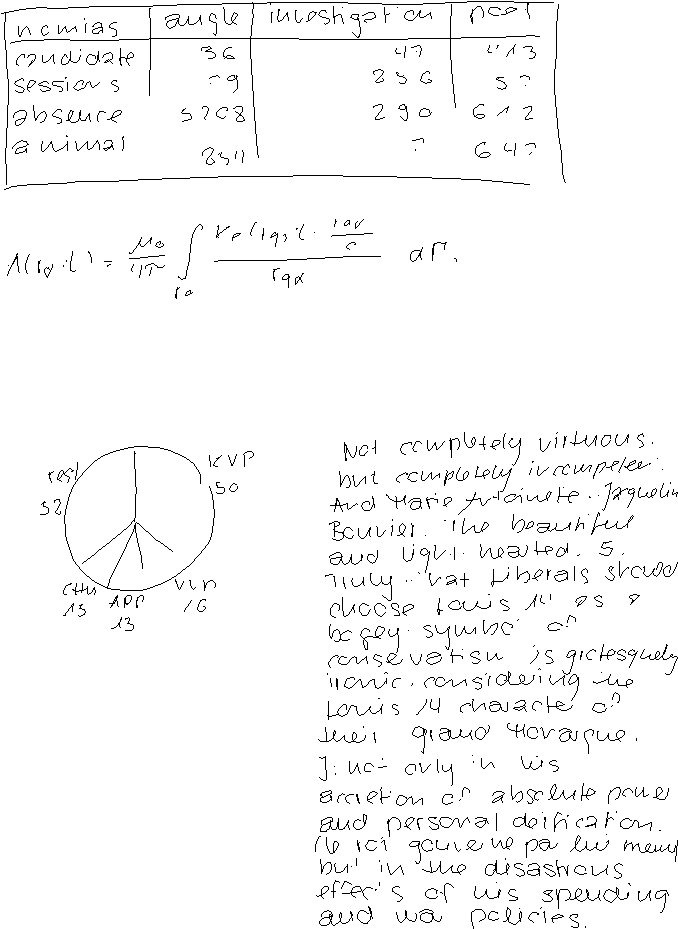 nomias angle investigation pool
candidate 36 47 413
sessions 79 256 57
absence 5708 290 612
animal 8511 ? 647
rest
52
KVP
50
13
APP
13
16
Not completely virtuous.
but completely incompeten.
And Marie Antoinete. Jaquelin
Bouvier. The beautiful
and light hearted. 5.
Truly. hat Liberals should
choose Louis 14 as a
bogey symbol of
conservatism is grotesquely
ironic. considering the
Louis 14 character of
their grand Monarque.
not only in his
accretion of absolute power
and personal deification.
le roi gouverne pa lui mem
but in the disastrous
effects of his spending
and wa policies.